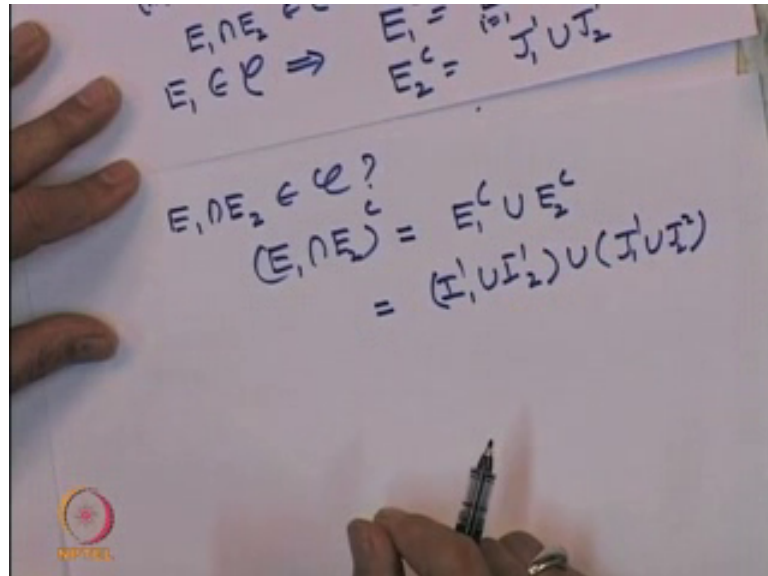 E₁∩E₂ ∈
E₁ᶜ =
E₁ ∈ 𝒞 ⇒ E₂ᶜ = J₁¹ ∪ J₂¹
E₁∩E₂ ∈ 𝒞 ?
(E₁∩E₂)ᶜ = E₁ᶜ ∪ E₂ᶜ
= (I₁¹ ∪ I₂¹) ∪ (J₁¹ ∪ J₂²)
NPTEL